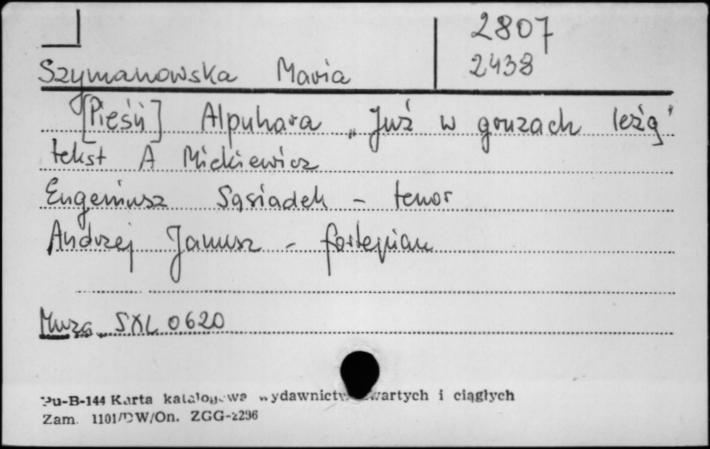 2807
2438
Szymanowska Maria
[Pieśń] Alpuhara „Już w gruzach leżą"
tekst A Mickiewicz
Eugeniusz Sąsiadek - tenor
Andrzej Janusz - fortepian
Muza SXL 0620
Pu-B-144 Karta katalogowa wydawnictw zwartych i ciągłych
Zam. 1101/DW/On. ZGG-2296